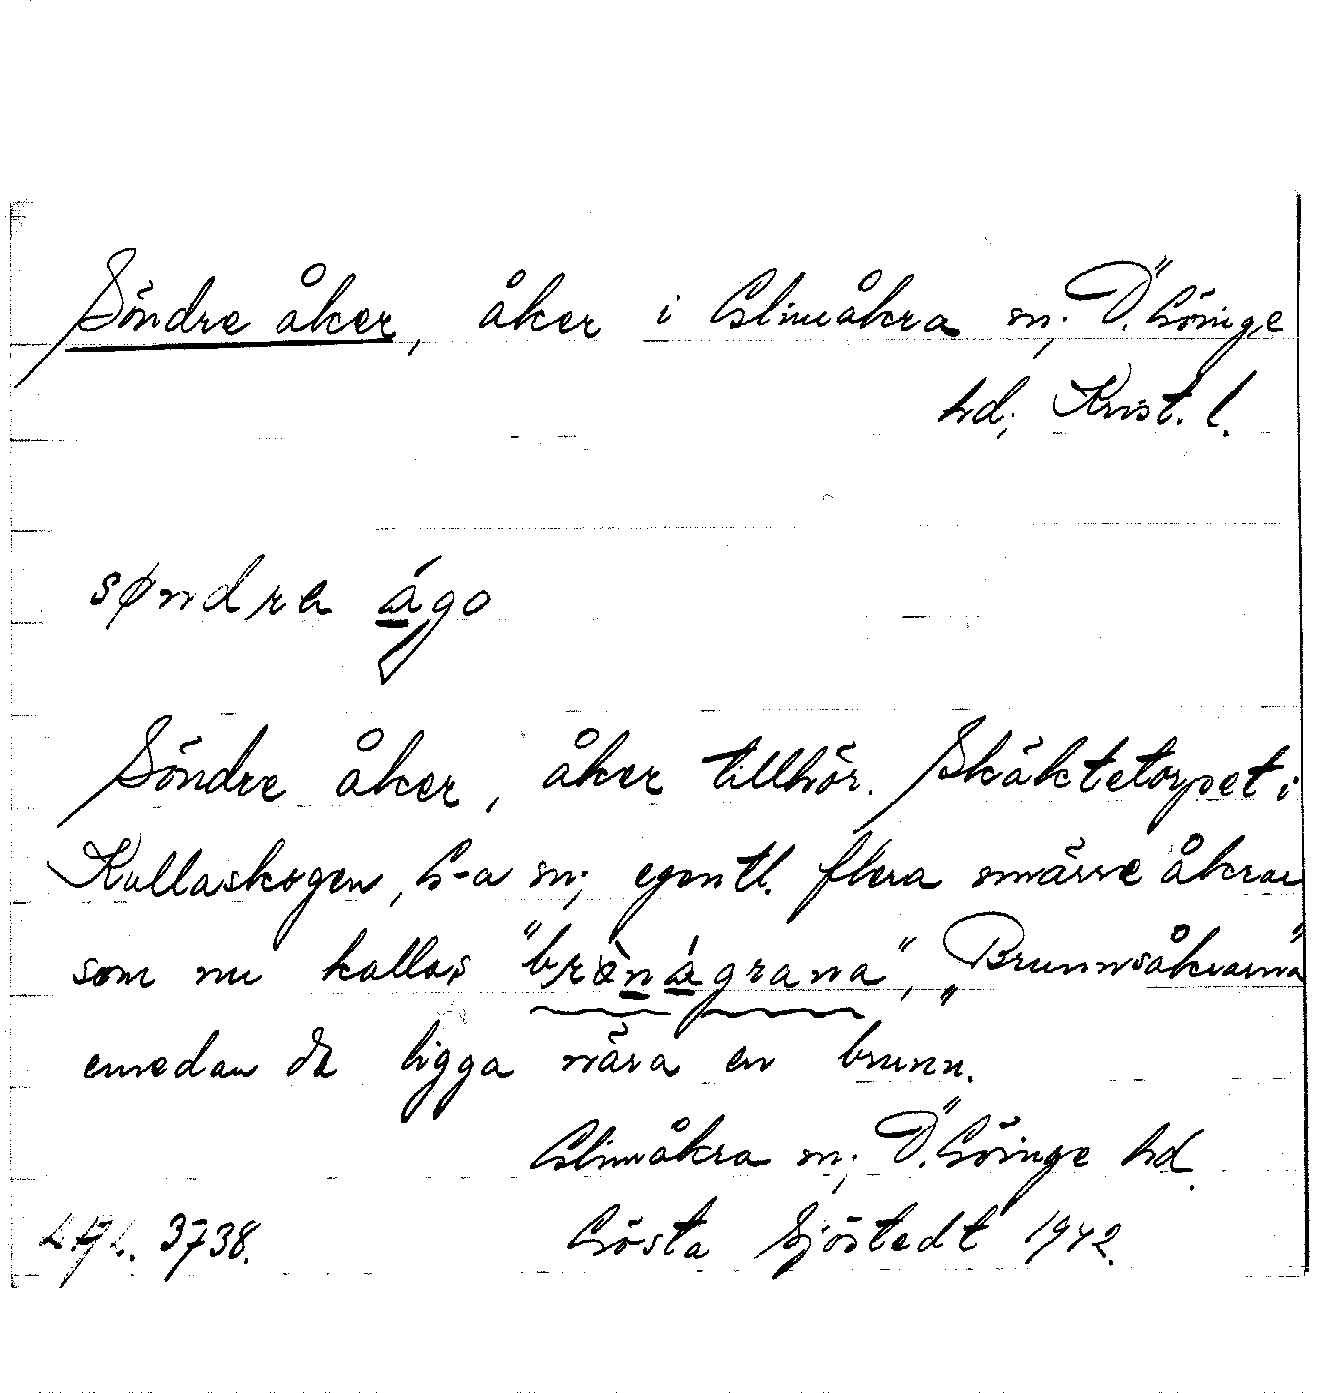 Söndre åker, åker i Glimåkra sn; Ö. Göinge
hd; Krist. l.
søndra ágo
Söndre åker, åker tillhör. Skäktetorpet i
Kullaskogen, G-a sn; egentl. flera smärre åkrar
som nu kallas "brònágrana", „Brunnsåkrarna"
emedan de ligga nära en brunn.
Glimåkra sn; Ö. Göinge hd.
LAL. 3738. Gösta Sjöstedt 1942.